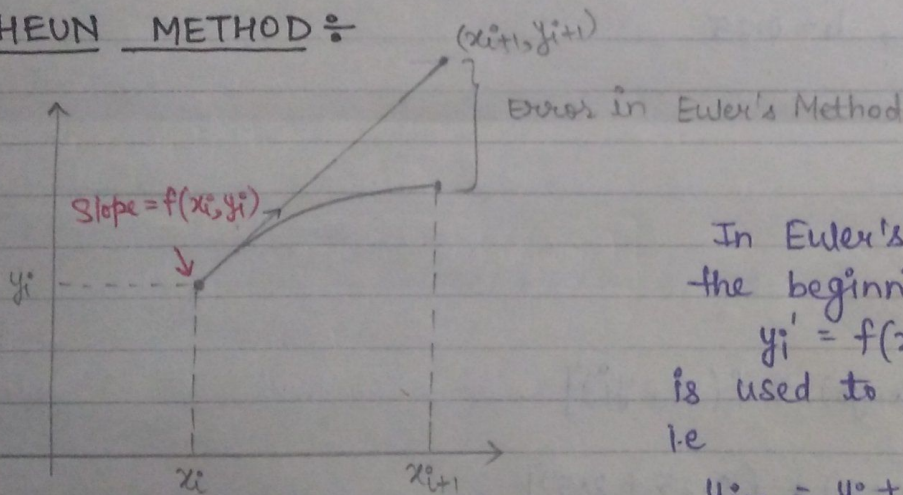 HEUN METHOD÷
(xi+1, yi+1)
Error in Euler's Method
Slope = f(xi, yi)
yi
xi
xi+1
In Euler's
the beginn
yi' = f(
is used to
i.e
yi = yi +